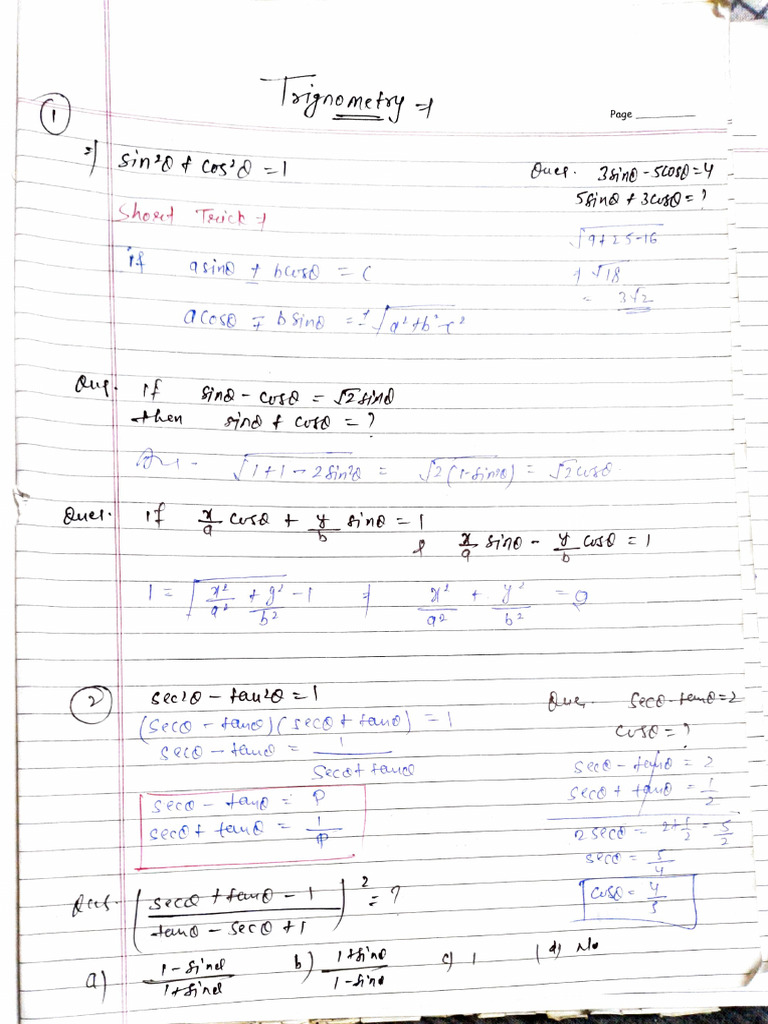 Trignometry →
Page
①
⇒ sin²θ + cos²θ = 1
Ques. 3sinθ - 5cosθ = 4
5sinθ + 3cosθ = ?
√9+25-16
√18
= 3√2
Short Trick →
if asinθ ± bcosθ = c
acosθ ∓ bsinθ = ±√a²+b²-c²
Ques. If sinθ - cosθ = √2 sinθ
then sinθ + cosθ = ?
Ans - √1+1-2sin²θ = √2(1-sin²θ) = √2cosθ.
Ques. If x/a cosθ + y/b sinθ = 1
& x/a sinθ - y/b cosθ = 1
1 = √x²/a² + y²/b² - 1 ⇒ x²/a² + y²/b² = 2
② sec²θ - tan²θ = 1
(secθ - tanθ)(secθ + tanθ) = 1
secθ - tanθ = 1/secθ+tanθ
secθ - tanθ = P
secθ + tanθ = 1/P
Ques. secθ - tanθ = 2
cosθ = ?
secθ - tanθ = 2
secθ + tanθ = 1/2
2secθ = 2+1/2 = 5/2
secθ = 5/4
cosθ = 4/5
Ques. (secθ + tanθ - 1 / tanθ - secθ + 1)² = ?
a) 1-sinθ/1+sinθ b) 1+sinθ/1-sinθ c) 1 d) No